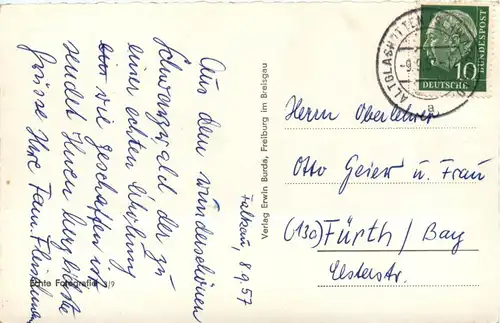 Falkau, 8.9.57
Aus dem wunderschönen
Schwarzwald der zu
einer echten Erholung
wie geschaffen ist
sendet Ihnen herzlichste
Grüsse Ihre Fam.
Echte Fotografie 3/9
Verlag Erwin Burda, Freiburg im Breisgau
ALTGLASHÜTTEN
a
10
DEUTSCHE
BUNDESPOST
Herrn Oberlehrer
Otto Geier u. Frau
(13a) Fürth/Bay
Elsterstr.